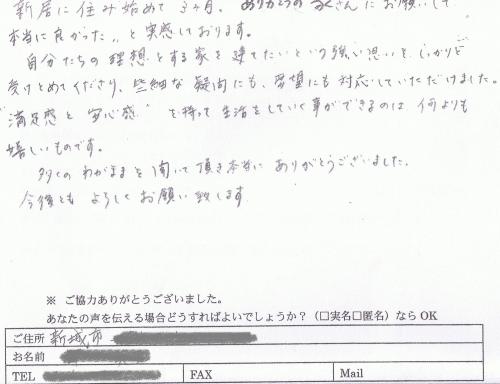 新居に住み始めて3ヶ月、ありがとうの さんにお願いして
本当に良かった。と実感しております。
自分たちの理想とする家を建てたいという強い思いを、しっかりと
受けとめてくださり、些細な疑問にも、要望にも対応していただけました。
"満足感と安心感"を持って生活をしていく事ができるのは、何よりも
嬉しいものです。
多くのわがままを聞いて頂き本当にありがとうございました。
今後ともよろしくお願い致します
※ ご協力ありがとうございました。
あなたの声を伝える場合どうすればよいでしょうか？(□実名□匿名) なら OK
ご住所 新城市
お名前
TEL FAX Mail